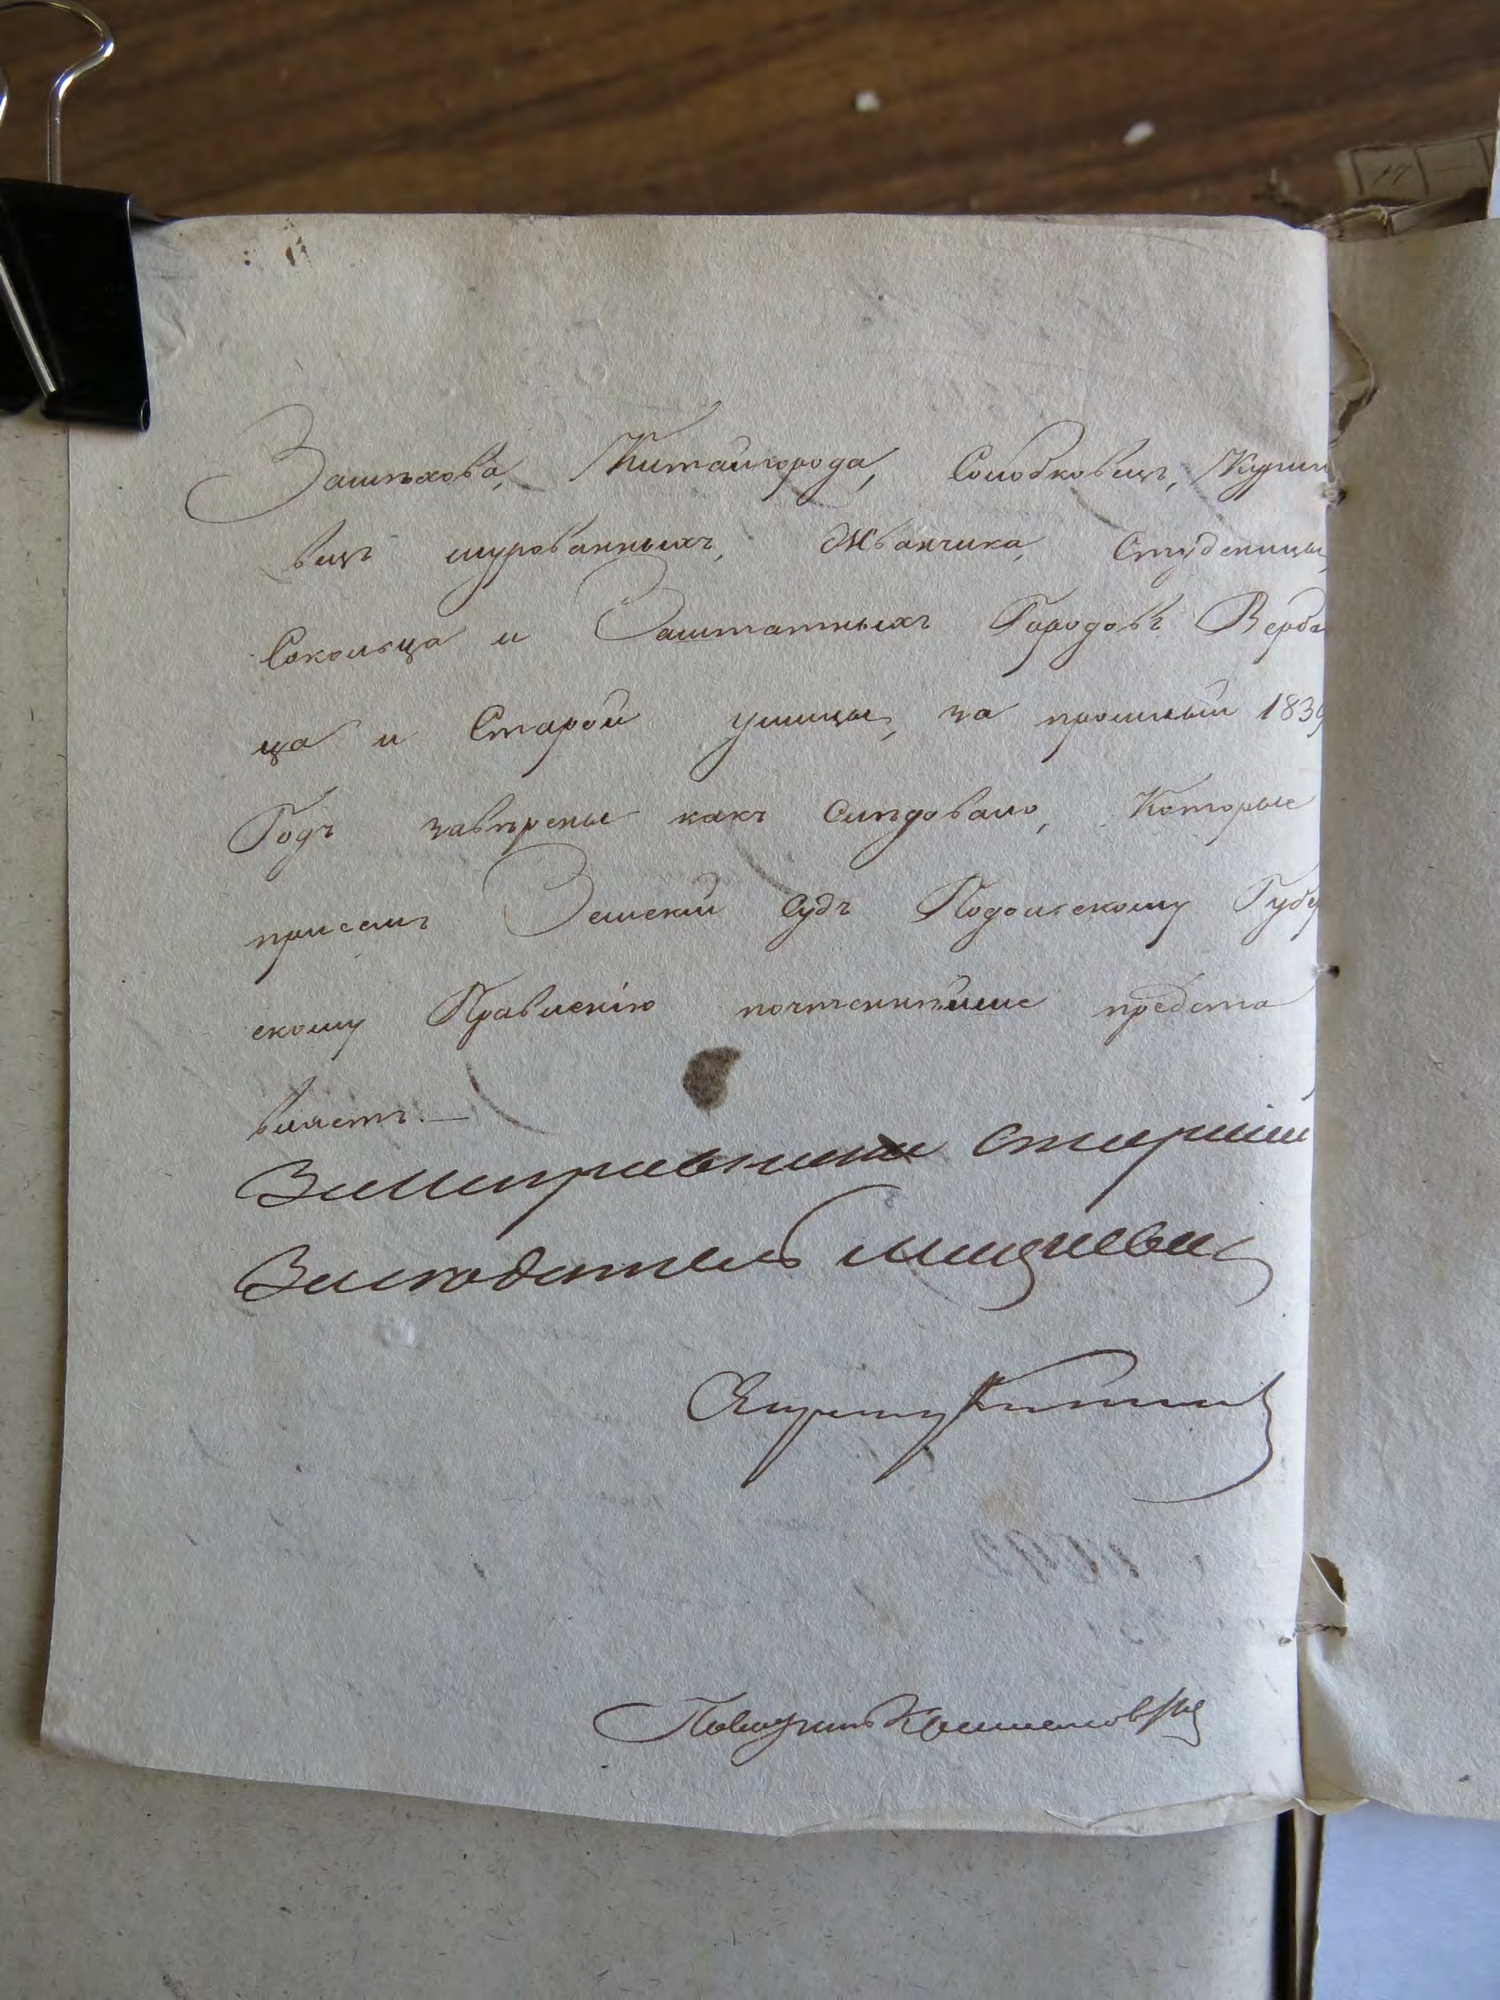 Зашихова, Китайгорода, Солобковецъ, Купин
вецъ мурованныхъ, Жванчика, Студеницы,
Сокольца и Заштатныхъ Городовъ Верба
ца и Старой ушицы, за прошлый 1839
Годъ завѣрены какъ Слѣдовало, Которые
присемъ Земский Судъ Подольскому Губе
скому Правленію почтеннѣйше предста
вляетъ. —
Заисправника Старший
Заседатель
Секретарь
Повытчикъ